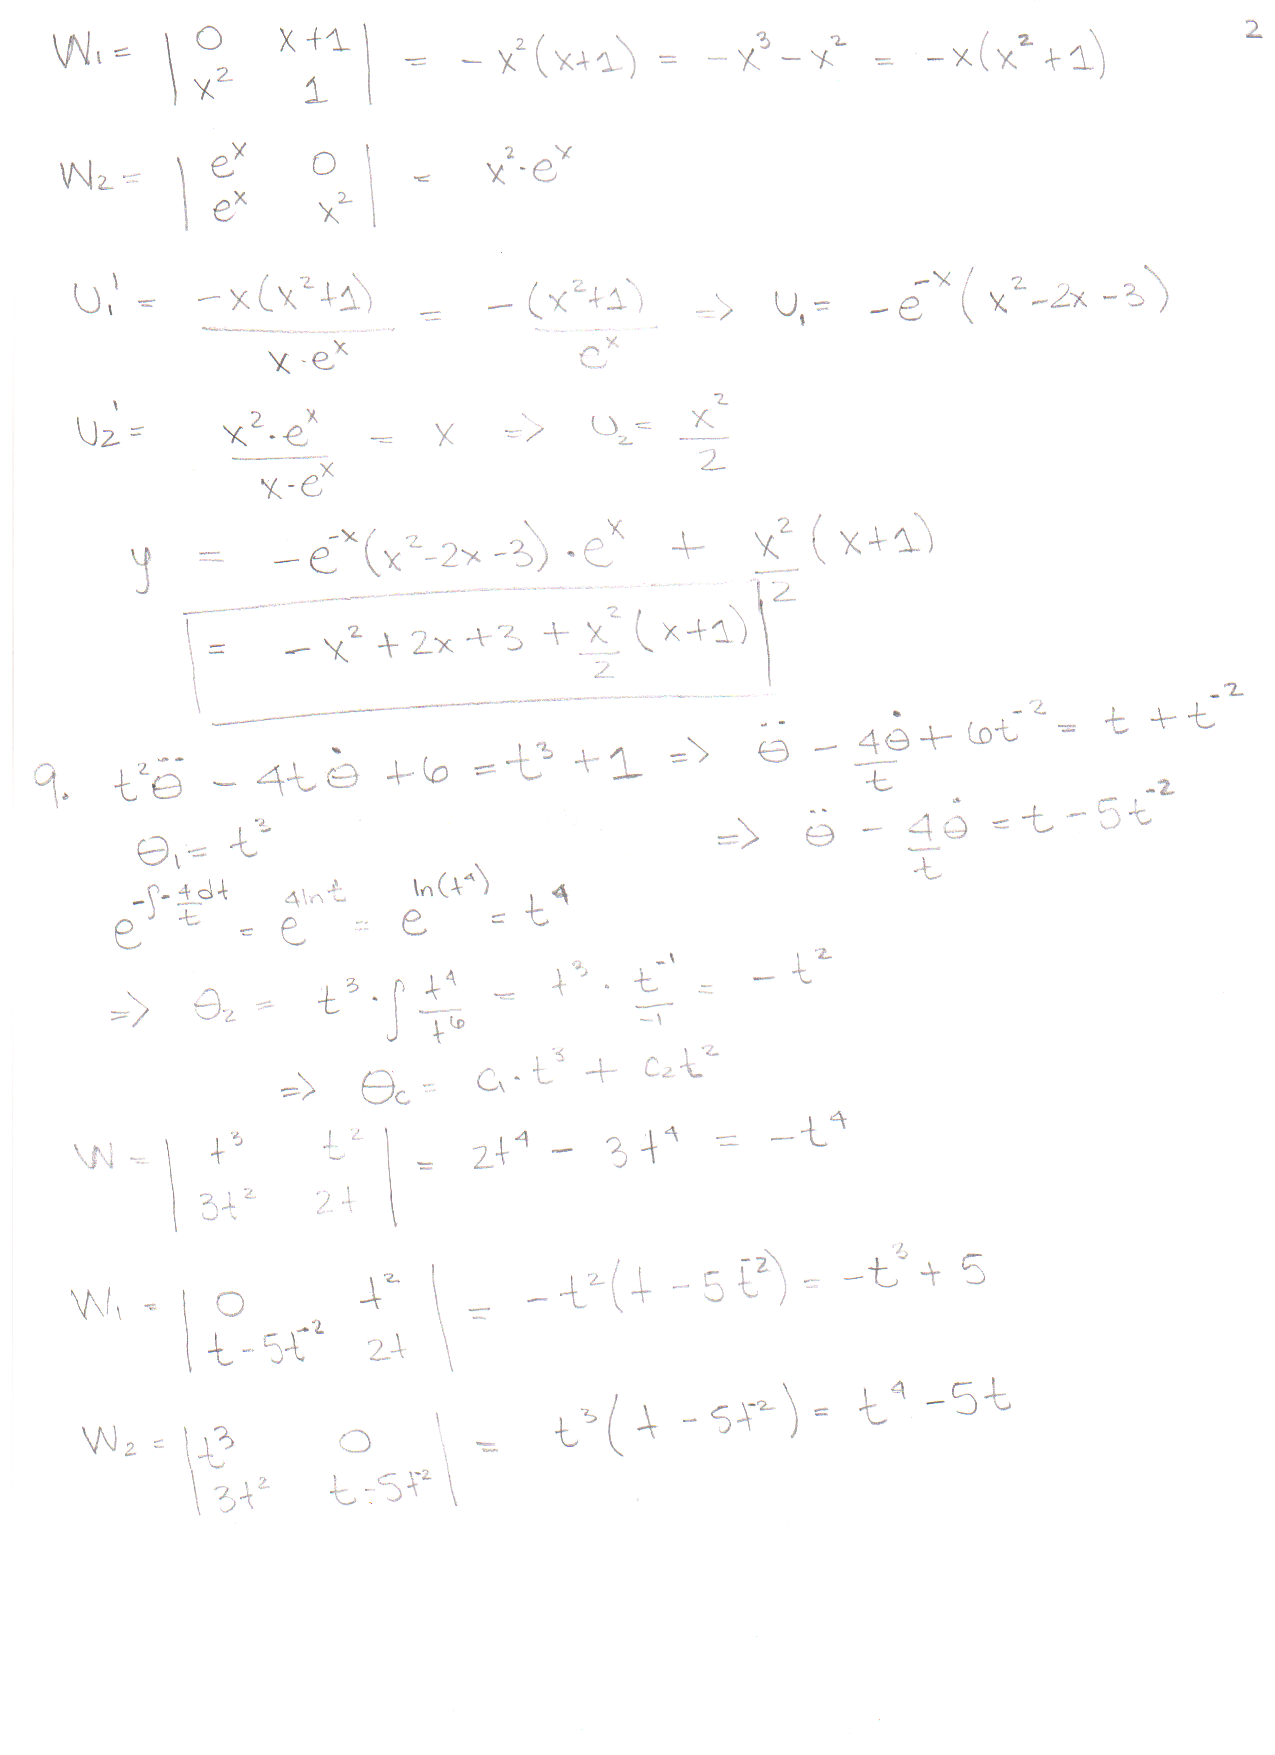 2
W₁ = | 0  x+1 ; x²  1 | = -x²(x+1) = -x³ - x² = -x(x²+1)
W₂ = | eˣ  0 ; eˣ  x² | = x²·eˣ
U₁' = -x(x²+1) / x·eˣ = -(x²+1) / eˣ => U₁ = -e⁻ˣ(x²-2x-3)
U₂' = x²·eˣ / x·eˣ = x => U₂ = x²/2
y = -e⁻ˣ(x²-2x-3)·eˣ + x²/2 (x+1)
= -x² + 2x + 3 + x²/2 (x+1)
9. t²θ̈ - 4tθ̇ + 6 = t³ + 1 => θ̈ - 4θ̇/t + 6t⁻² = t + t⁻²
θ₁ = t³ => θ̈ - 4θ̇/t = t - 5t⁻²
e^(-∫-4/t dt) = e^(4lnt) = e^(ln(t⁴)) = t⁴
=> θ₂ = t³·∫ t⁴/t⁶ = t³ · t⁻¹/-1 = -t²
=> θc = C₁·t³ + C₂t²
W = | t³  t² ; 3t²  2t | = 2t⁴ - 3t⁴ = -t⁴
W₁ = | 0  t² ; t-5t⁻²  2t | = -t²(t-5t⁻²) = -t³ + 5
W₂ = | t³  0 ; 3t²  t-5t⁻² | = t³(t-5t⁻²) = t⁴ - 5t